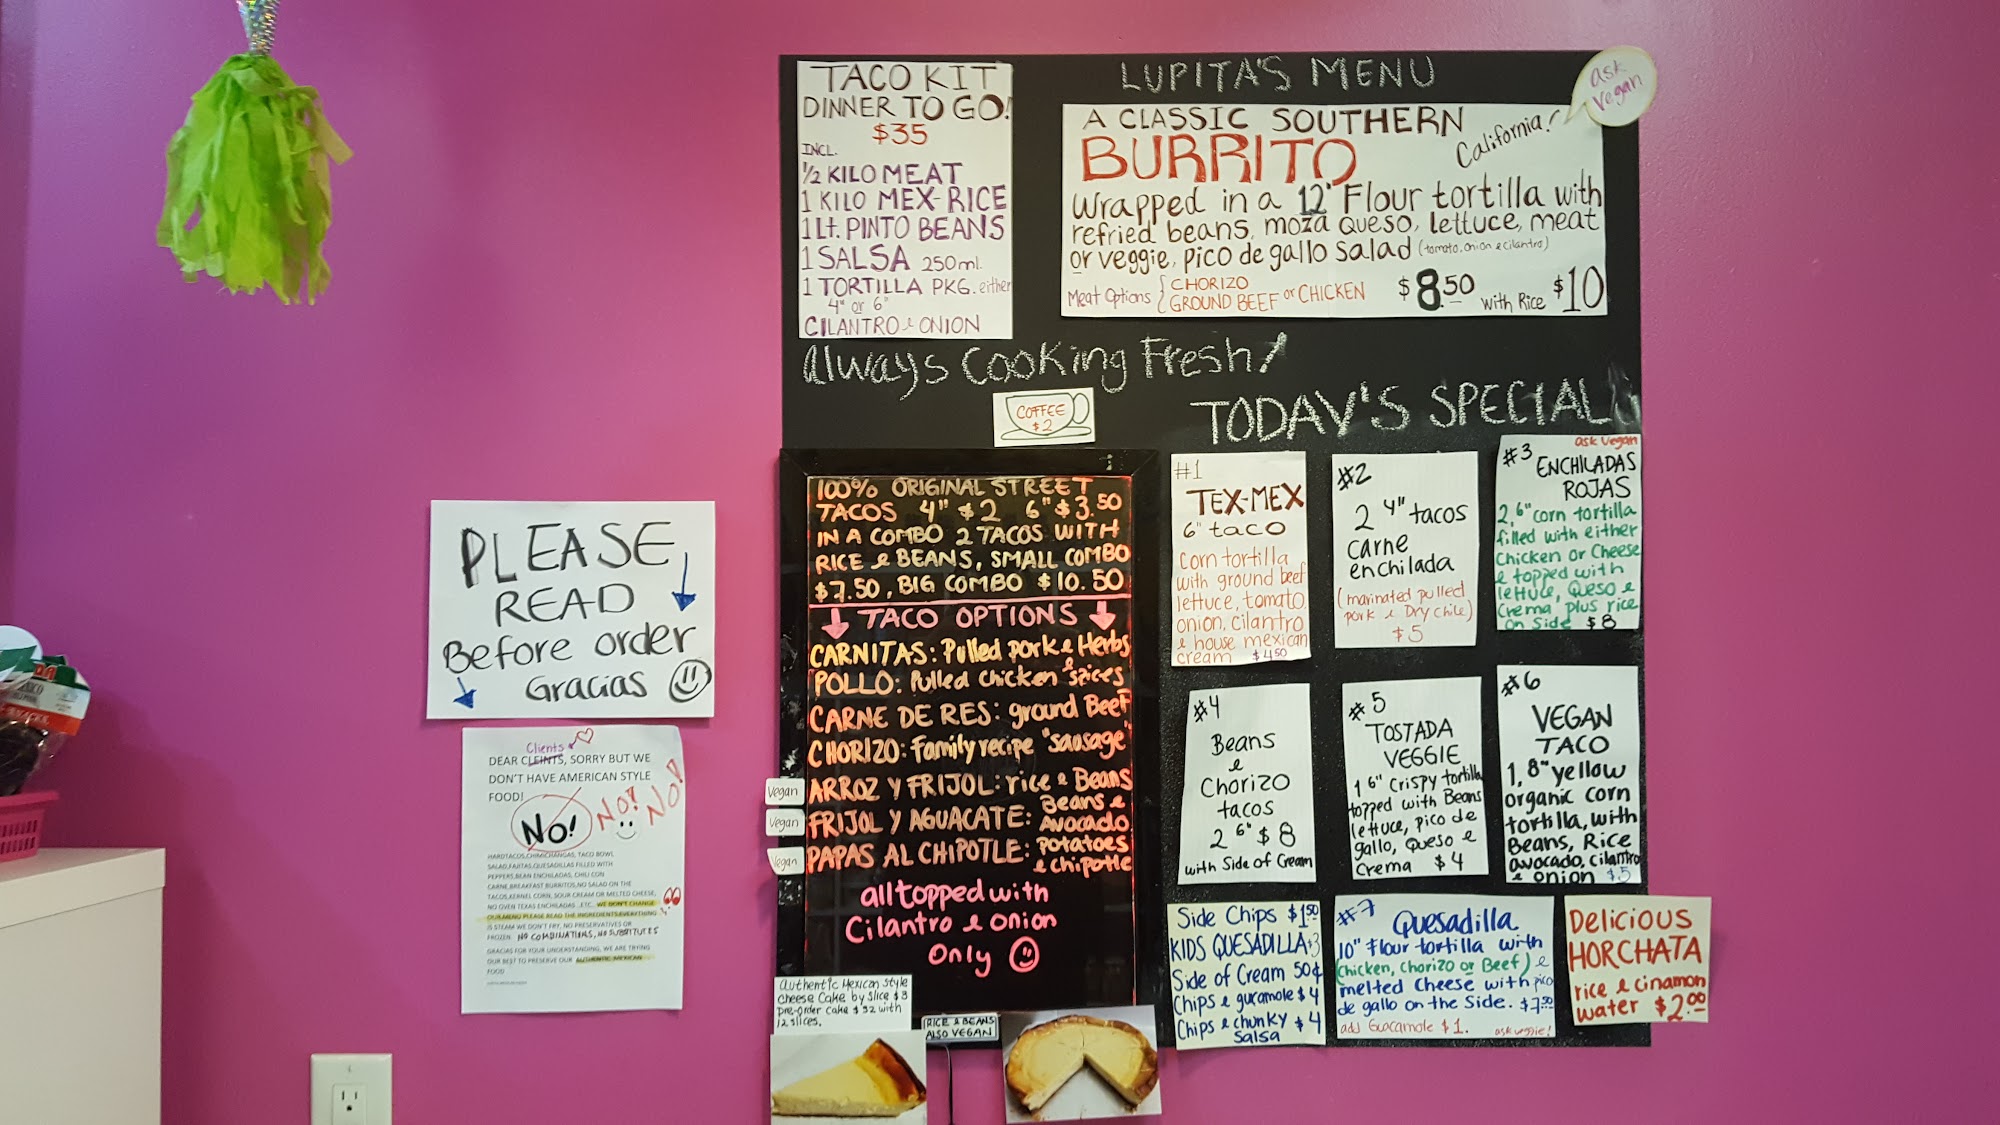 LUPITA'S MENU
ask
vegan
TACO KIT
DINNER TO GO!
$35
INCL.
1/2 KILO MEAT
1 KILO MEX-RICE
1 Lt. PINTO BEANS
1 SALSA 250ml.
1 TORTILLA PKG. either
4" or 6"
CILANTRO e ONION
A CLASSIC SOUTHERN
California!
BURRITO
wrapped in a 12" Flour tortilla with
refried beans, moza queso, lettuce, meat
or veggie, pico de gallo salad (tomato, onion e cilantro)
Meat Options { CHORIZO
GROUND BEEF or CHICKEN
$8.50 with Rice $10
Always Cooking Fresh!
COFFEE
$2
TODAY'S SPECIAL
100% ORIGINAL STREET
TACOS 4" $2 6" $3.50
IN A COMBO 2 TACOS WITH
RICE e BEANS, SMALL COMBO
$7.50, BIG COMBO $10.50
TACO OPTIONS
CARNITAS: Pulled pork e Herbs
POLLO: Pulled chicken e spices
CARNE DE RES: ground Beef
CHORIZO: Family recipe "sausage"
Vegan ARROZ Y FRIJOL: rice e Beans
Vegan FRIJOL Y AGUACATE: Beans e Avocado
Vegan PAPAS AL CHIPOTLE: potatoes e chipotle
all topped with
Cilantro e onion
Only
#1
TEX-MEX
6" taco
Corn tortilla
with ground beef
lettuce, tomato,
onion, cilantro
e house mexican
cream $4.50
#2
2 4" tacos
carne
enchilada
(marinated pulled
pork e Dry chile)
$5
ask vegan
#3 ENCHILADAS
ROJAS
2, 6" corn tortilla
filled with either
Chicken or Cheese
e topped with
lettuce, Queso e
Crema plus rice
on Side $8
#4
Beans
e
Chorizo
tacos
2 6" $8
with Side of Cream
#5
TOSTADA
VEGGIE
1 6" Crispy tortilla
topped with Beans
lettuce, pico de
gallo, Queso e
Crema $4
#6
VEGAN
TACO
1, 8" yellow
organic corn
tortilla, with
Beans, Rice
avocado, cilantro
e onion $5
Side Chips $1.50
KIDS QUESADILLA $3
Side of Cream 50¢
Chips e guramole $4
Chips e chunky $4
Salsa
#7 Quesadilla
10" Flour tortilla with
(chicken, chorizo or Beef) e
melted cheese with pico
de gallo on the Side. $7.50
add Guacamole $1. ask veggie!
DELICIOUS
HORCHATA
rice e cinamon
water $2.00
Authentic Mexican Style
cheese Cake by Slice $3
pre-order cake $32 with
12 slices.
RICE e BEANS
ALSO VEGAN
PLEASE
READ
Before order
Gracias
Clients
DEAR CLEINTS, SORRY BUT WE
DON'T HAVE AMERICAN STYLE
FOOD!
NO! NO! NO!
HARDTACOS,CHIMICHANGAS, TACO BOWL
SALAD,FAJITAS,QUESADILLAS FILLED WITH
PEPPERS,BEAN ENCHILADAS, CHILI CON
CARNE,BREAKFAST BURRITOS,NO SALAD ON THE
TACOS,KERNEL CORN, SOUR CREAM OR MELTED CHEESE,
NO OVEN TEXAS ENCHILADAS ..ETC.. WE DON'T CHANGE
OUR MENU PLEASE READ THE INGREDIENTS,EVERYTHING
IS STEAM WE DON'T FRY, NO PRESERVATIVES OR
FROZEN. NO COMBINATIONS, NO SUBSTITUTES
GRACIAS FOR YOUR UNDERSTANDING, WE ARE TRYING
OUR BEST TO PRESERVE OUR AUTHENTIC MEXICAN
FOOD